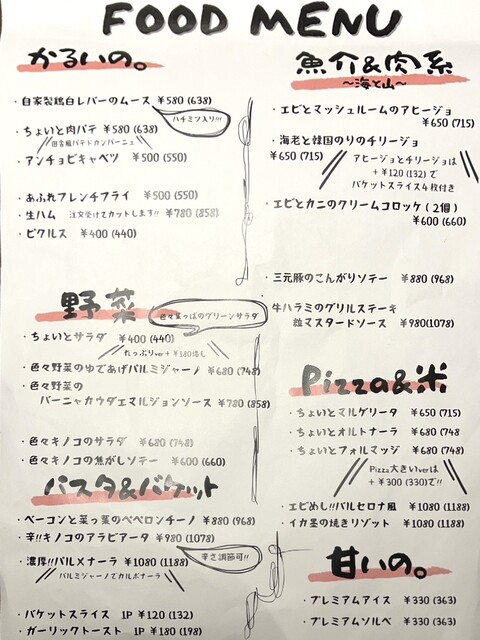 FOOD MENU
かるいの。
・自家製鶏白レバーのムース ¥580 (638)
ハチミツ入り!!!
・ちょいと肉パテ ¥580 (638)
田舎風パテドカンパーニュ
・アンチョビキャベツ ¥500 (550)
・あふれフレンチフライ ¥500 (550)
・生ハム 注文受けてカットします!! ¥780 (858)
・ピクルス ¥400 (440)
野菜
色々葉っぱのグリーンサラダ
・ちょいとサラダ ¥400 (440)
たっぷりver + ¥180増し
・色々野菜のゆであげパルミジャーノ ¥680 (748)
・色々野菜の
バーニャカウダエマルジョンソース ¥780 (858)
・色々キノコのサラダ ¥680 (748)
・色々キノコの焦がしソテー ¥600 (660)
パスタ&バケット
・ベーコンと菜っ葉のペペロンチーノ ¥880 (968)
・辛!!キノコのアラビアータ ¥980 (1078)
辛さ調節可!!
・濃厚!!パルメナーラ ¥1080 (1188)
パルミジャーノでカルボナーラ
・バケットスライス 1P ¥120 (132)
・ガーリックトースト 1P ¥180 (198)
魚介&肉系
〜海と山〜
・エビとマッシュルームのアヒージョ
¥650 (715)
・海老と韓国のりのチリージョ
¥650 (715)
アヒージョとチリージョは
+ ¥120 (132) で
バケットスライス4枚付き
・エビとカニのクリームコロッケ (2個)
¥600 (660)
・三元豚のこんがりソテー ¥880 (968)
牛ハラミのグリルステーキ
粒マスタードソース ¥980(1078)
Pizza&米
・ちょいとマルゲリータ ¥650 (715)
・ちょいとオルトナーラ ¥680 (748
・ちょいとフォルマッジ ¥680 (748)
Pizza大きいverは
+ ¥300 (330)で!!
・エビめし!!バルセロナ風 ¥1080 (1188)
・イカ墨の焼きリゾット ¥1080 (1188)
甘いの。
・プレミアムアイス ¥330 (363)
・プレミアムソルベ ¥330 (363)